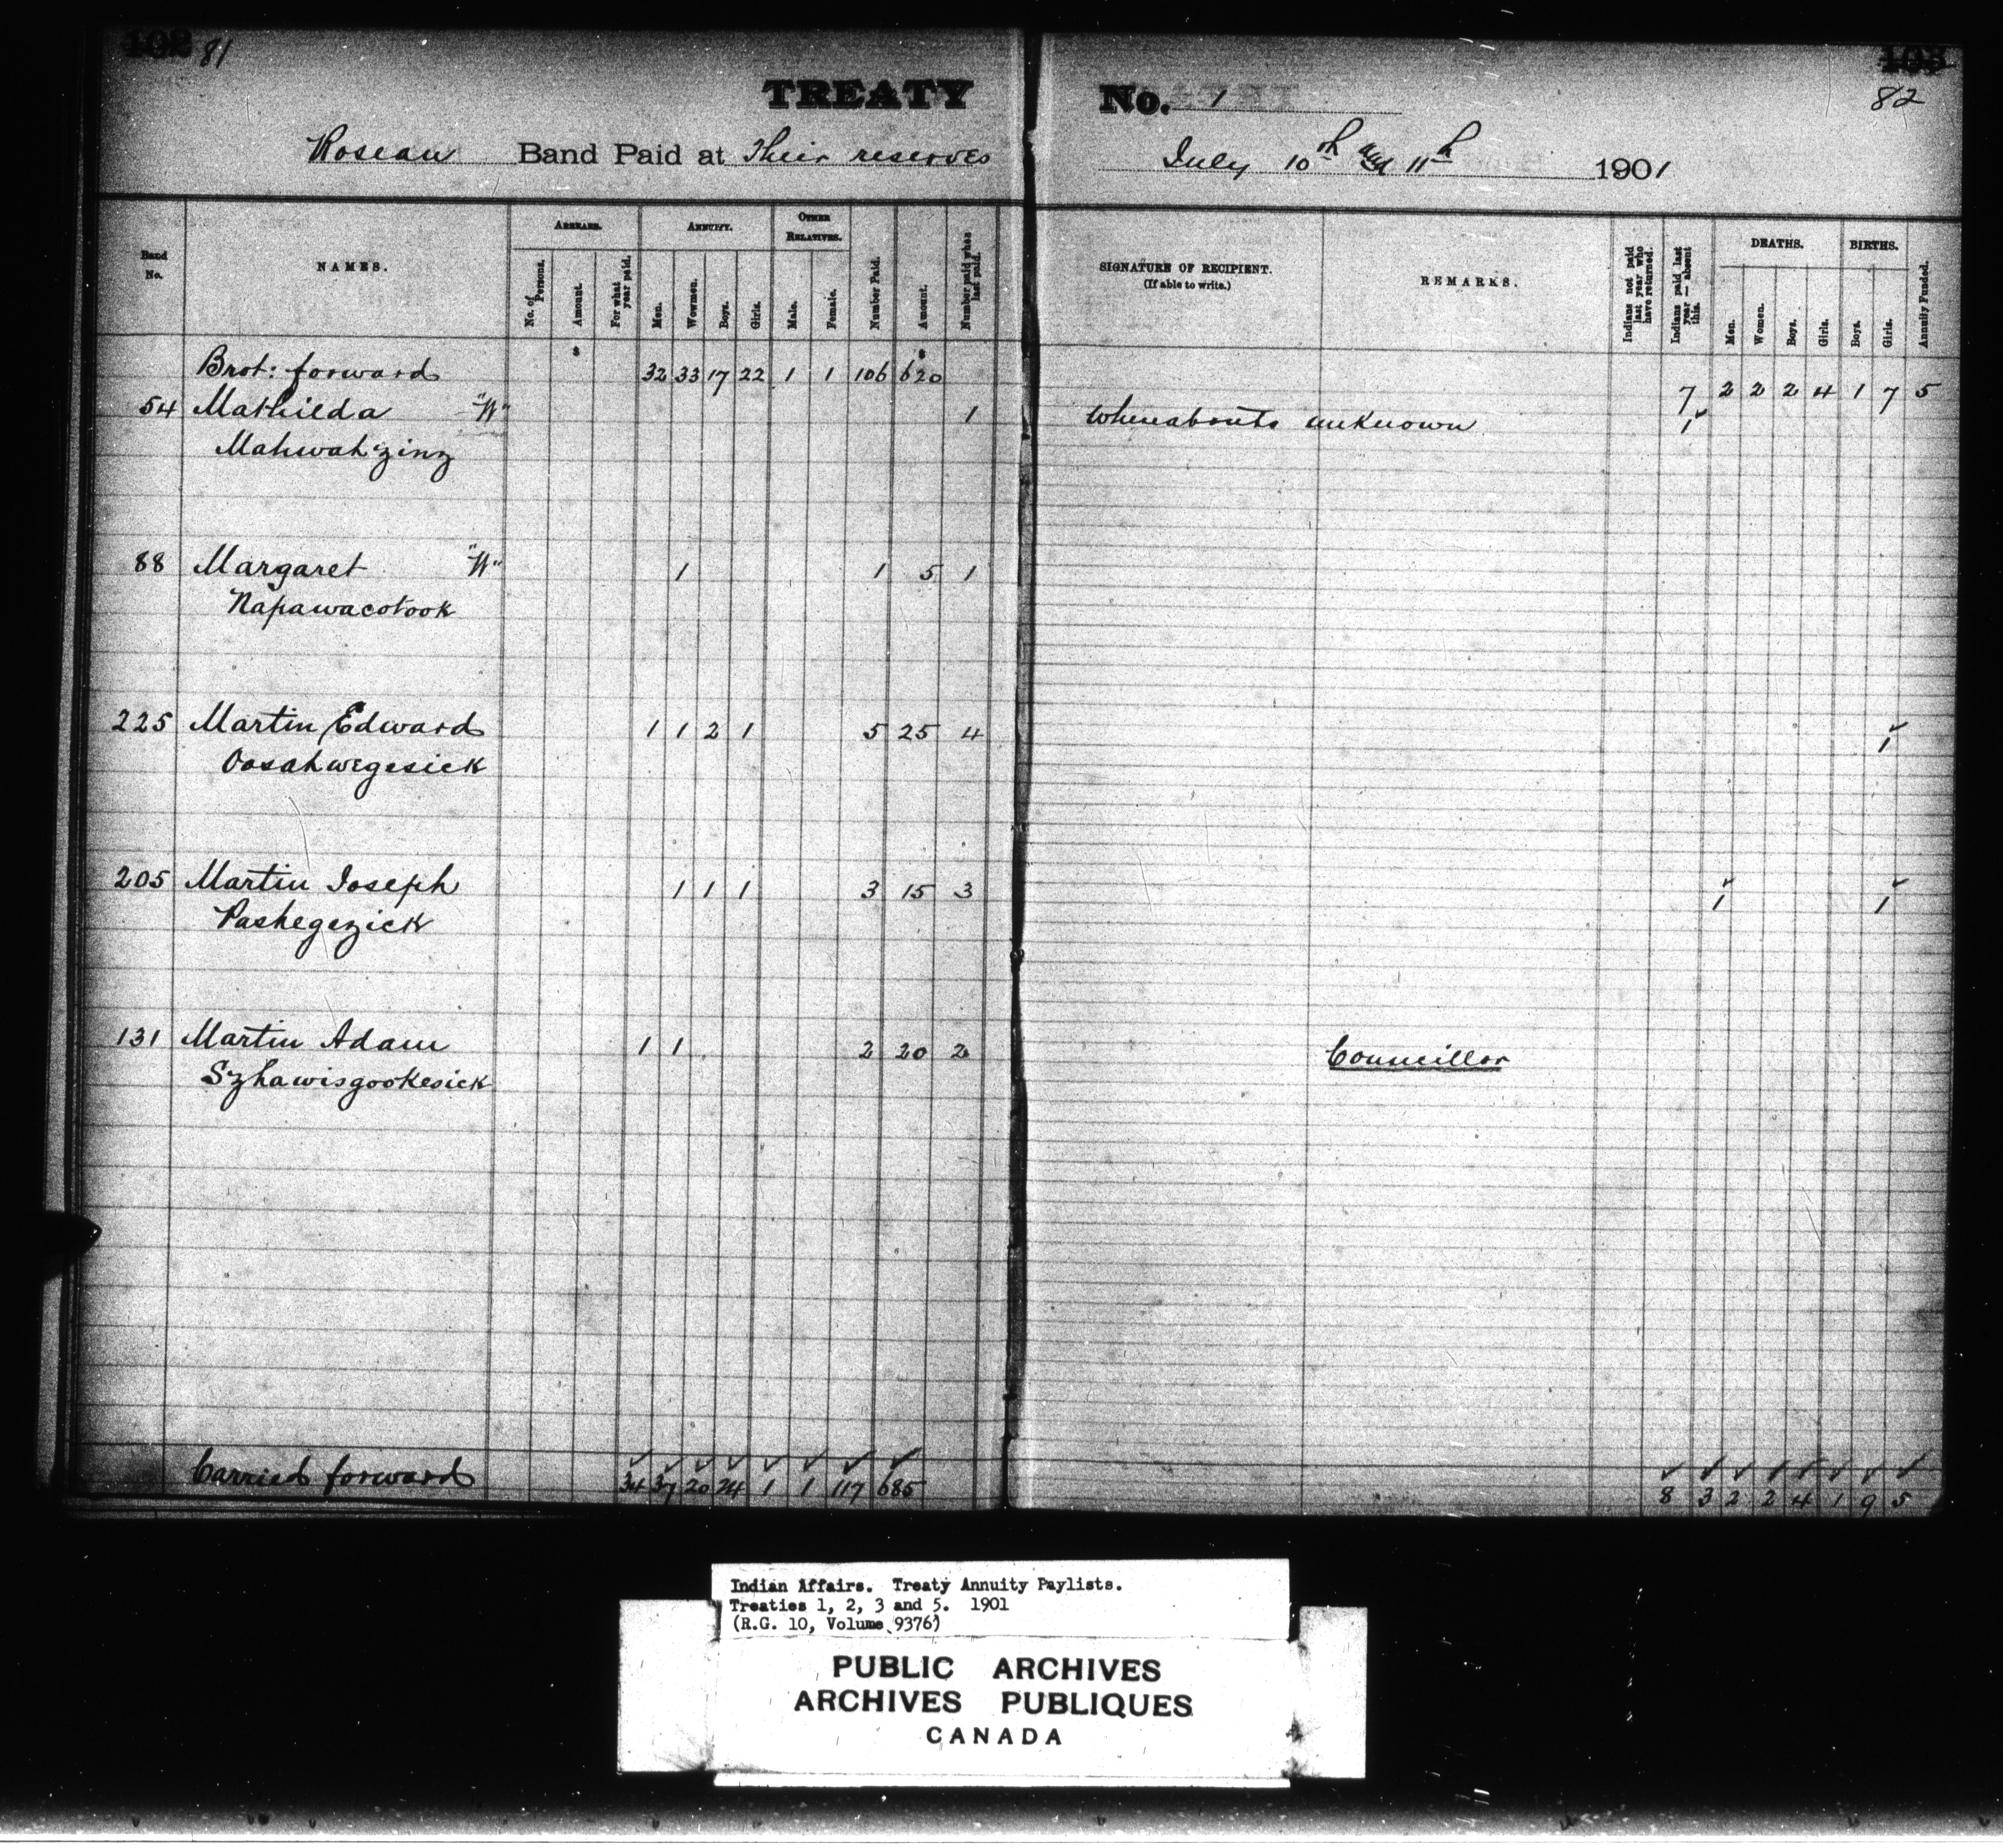 102 81
TREATY No. 1
103
82
Roseau Band Paid at Their reserves July 10th and 11th 1901
Band No.
NAMES.
ARREARS.
No. of Persons.
Amount.
For what year paid.
ANNUITY.
Men.
Wowmen.
Boys.
Girls.
OTHER RELATIVES.
Male.
Female.
Number Paid.
Amount.
Number paid when last paid.
SIGNATURE OF RECIPIENT.
(If able to write.)
REMARKS.
Indians not paid last year who have returned.
Indians paid last year — absent this.
DEATHS.
Men.
Women.
Boys.
Girls.
BIRTHS.
Boys.
Girls.
Annuity Funded.
$ $
Brot: forward 32 33 17 22 1 1 106 620 7 2 2 2 4 1 7 5
54 Mathilda "W" 1 Whereabouts unknown 1
Mahwah'zing
88 Margaret "W" 1 1 5 1
Napawacotook
225 Martin Edward 1 1 2 1 5 25 4 1
Oosahwegesick
205 Martin Joseph 1 1 1 3 15 3 1 1
Pashegezick
131 Martin Adam 1 1 2 20 2 Councillor
Szhawisgookesick
Carried forward 34 37 20 24 1 1 117 685 8 3 2 2 4 1 9 5
Indian Affairs. Treaty Annuity Paylists.
Treaties 1, 2, 3 and 5. 1901
(R.G. 10, Volume 9376)
PUBLIC ARCHIVES
ARCHIVES PUBLIQUES
CANADA